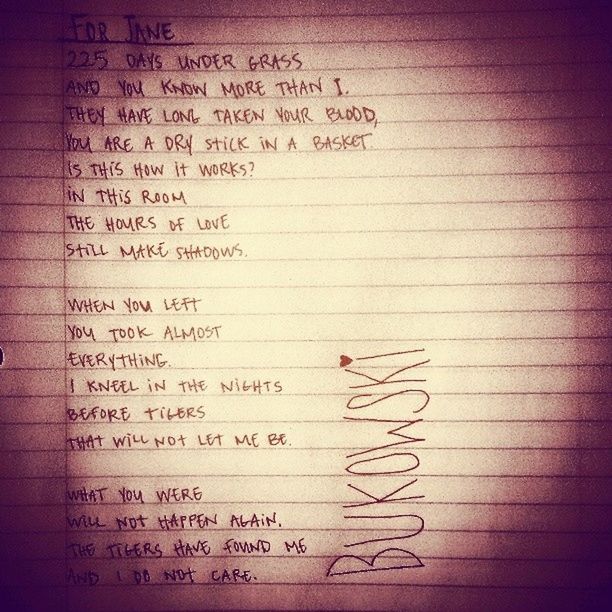 FOR JANE
225 DAYS UNDER GRASS
AND YOU KNOW MORE THAN I.
THEY HAVE LONG TAKEN YOUR BLOOD,
YOU ARE A DRY STICK IN A BASKET.
IS THIS HOW IT WORKS?
IN THIS ROOM
THE HOURS OF LOVE
STILL MAKE SHADOWS.

WHEN YOU LEFT
YOU TOOK ALMOST
EVERYTHING.
I KNEEL IN THE NIGHTS
BEFORE TIGERS
THAT WILL NOT LET ME BE.

WHAT YOU WERE
WILL NOT HAPPEN AGAIN.
THE TIGERS HAVE FOUND ME
AND I DO NOT CARE.
BUKOWSKI